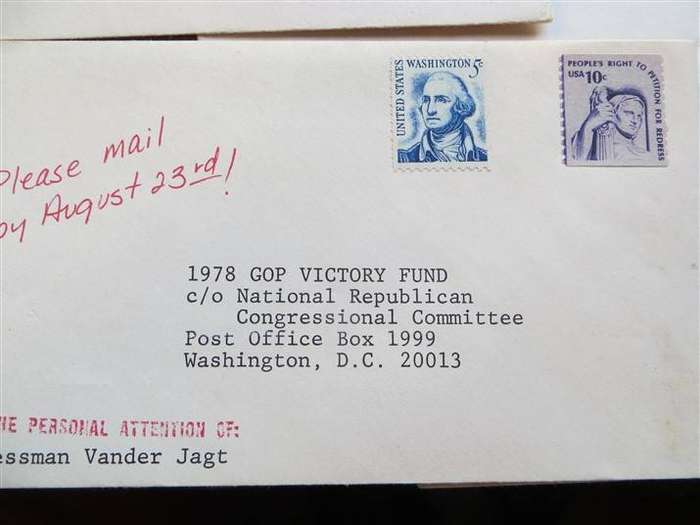 UNITED STATES
WASHINGTON 5c
PEOPLE'S RIGHT TO PETITION FOR REDRESS
USA 10c
Please mail
by August 23rd!
1978 GOP VICTORY FUND
c/o National Republican
Congressional Committee
Post Office Box 1999
Washington, D.C. 20013
HE PERSONAL ATTENTION OF:
essman Vander Jagt